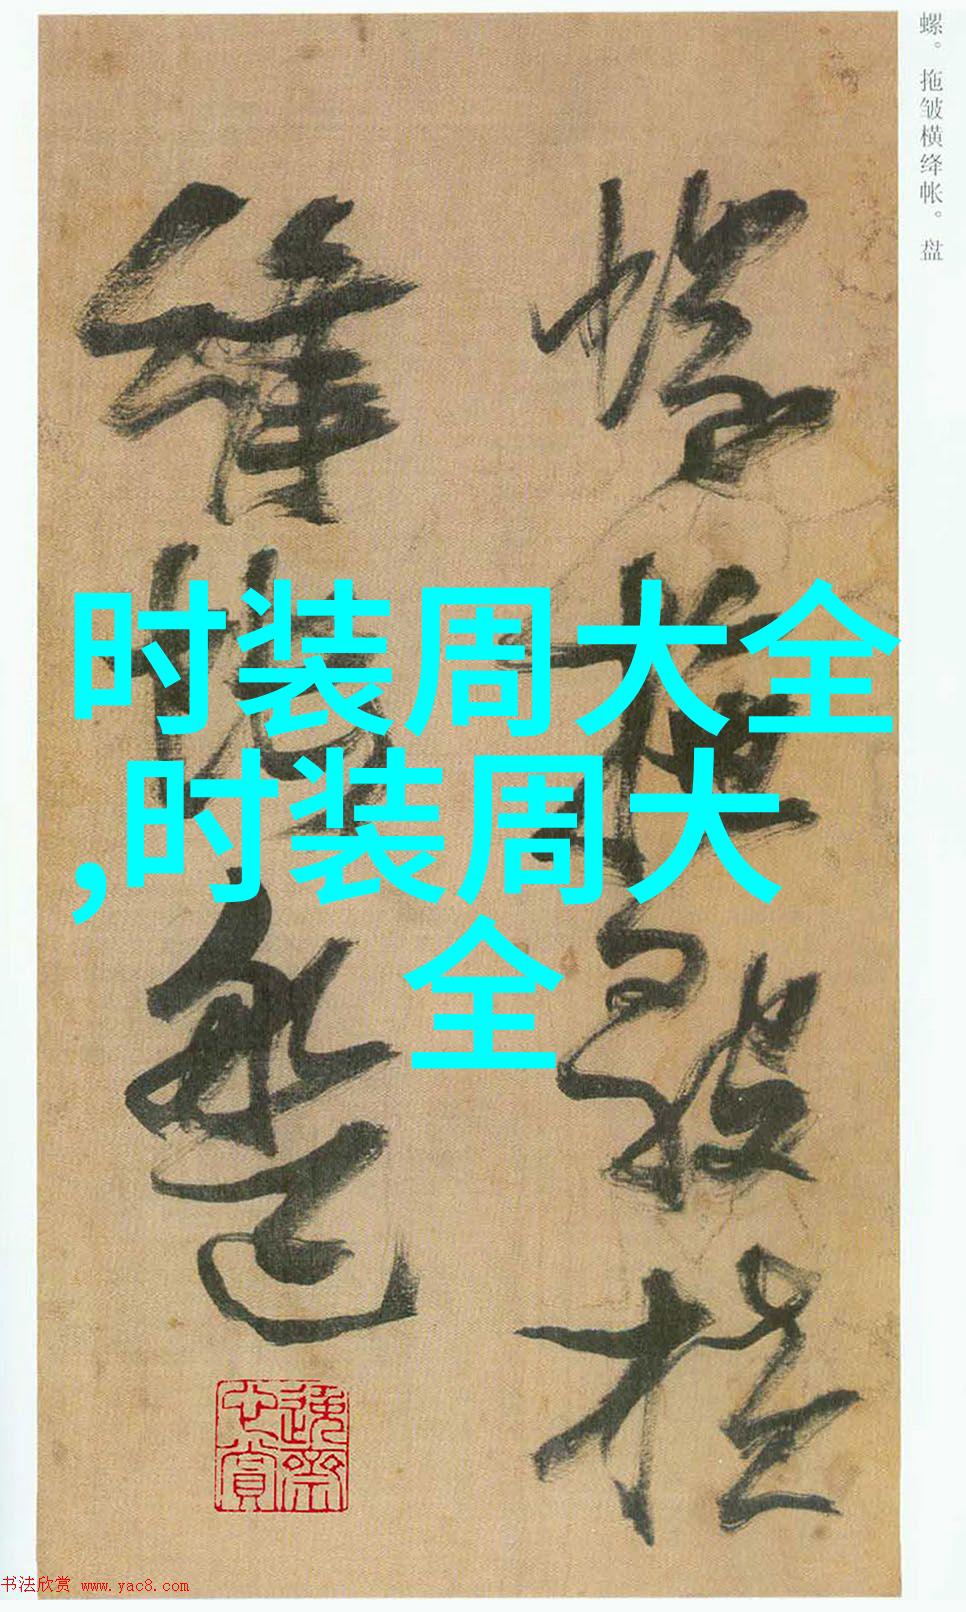 螺。拖皱横绛帐。盘
螺拖皺橫
絳帳盤
时装周大全
,时装周大
全
书法欣赏 www.yac8.com